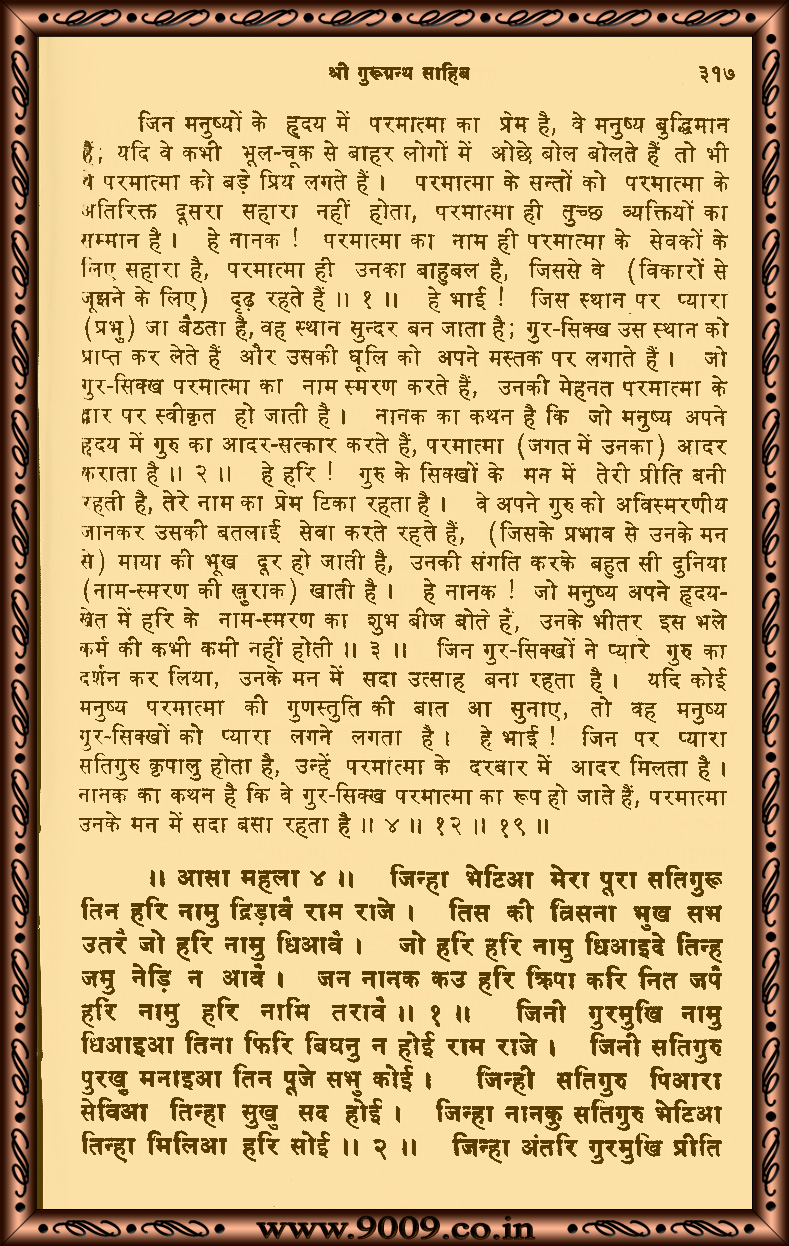 श्री गुरूग्रन्थ साहिब ३१७
जिन मनुष्यों के हृदय में परमात्मा का प्रेम है, वे मनुष्य बुद्धिमान
हैं; यदि वे कभी भूल-चूक से बाहर लोगों में ओछे बोल बोलते हैं तो भी
वे परमात्मा को बड़े प्रिय लगते हैं। परमात्मा के सन्तों को परमात्मा के
अतिरिक्त दूसरा सहारा नहीं होता, परमात्मा ही तुच्छ व्यक्तियों का
सम्मान है। हे नानक! परमात्मा का नाम ही परमात्मा के सेवकों के
लिए सहारा है, परमात्मा ही उनका बाहुबल है, जिससे वे (विकारों से
जूझने के लिए) दृढ़ रहते हैं॥ १ ॥ हे भाई! जिस स्थान पर प्यारा
(प्रभु) जा बैठता है, वह स्थान सुन्दर बन जाता है; गुर-सिक्ख उस स्थान को
प्राप्त कर लेते हैं और उसकी धूलि को अपने मस्तक पर लगाते हैं। जो
गुर-सिक्ख परमात्मा का नाम स्मरण करते हैं, उनकी मेहनत परमात्मा के
द्वार पर स्वीकृत हो जाती है। नानक का कथन है कि जो मनुष्य अपने
हृदय में गुरु का आदर-सत्कार करते हैं, परमात्मा (जगत में उनका) आदर
कराता है॥ २ ॥ हे हरि! गुरु के सिक्खों के मन में तेरी प्रीति बनी
रहती है, तेरे नाम का प्रेम टिका रहता है। वे अपने गुरु को अविस्मरणीय
जानकर उसकी बतलाई सेवा करते रहते हैं, (जिसके प्रभाव से उनके मन
से) माया की भूख दूर हो जाती है, उनकी संगति करके बहुत सी दुनिया
(नाम-स्मरण की खुराक) खाती है। हे नानक! जो मनुष्य अपने हृदय-
खेत में हरि के नाम-स्मरण का शुभ बीज बोते हैं, उनके भीतर इस भले
कर्म की कभी कमी नहीं होती॥ ३ ॥ जिन गुर-सिक्खों ने प्यारे गुरु का
दर्शन कर लिया, उनके मन में सदा उत्साह बना रहता है। यदि कोई
मनुष्य परमात्मा की गुणस्तुति की बात आ सुनाए, तो वह मनुष्य
गुर-सिक्खों को प्यारा लगने लगता है। हे भाई! जिन पर प्यारा
सतिगुरु कृपालु होता है, उन्हें परमात्मा के दरबार में आदर मिलता है।
नानक का कथन है कि वे गुर-सिक्ख परमात्मा का रूप हो जाते हैं, परमात्मा
उनके मन में सदा बसा रहता है॥ ४ ॥ १२ ॥ १९ ॥
॥ आसा महला ४ ॥ जिन्हा भेटिआ मेरा पूरा सतिगुरू
तिन हरि नामु द्रिड़ावै राम राजे। तिस की त्रिसना भुख सभ
उतरै जो हरि नामु धिआवै। जो हरि हरि नामु धिआइदे तिन्ह
जमु नेड़ि न आवै। जन नानक कउ हरि क्रिपा करि नित जपै
हरि नामु हरि नामि तरावै॥ १ ॥ जिनी गुरमुखि नामु
धिआइआ तिना फिरि बिघनु न होई राम राजे। जिनी सतिगुरु
पुरखु मनाइआ तिन पूजे सभु कोई। जिन्ही सतिगुरु पिआरा
सेविआ तिन्हा सुखु सद होई। जिन्हा नानकु सतिगुरु भेटिआ
तिन्हा मिलिआ हरि सोई॥ २ ॥ जिन्हा अंतरि गुरमुखि प्रीति
www.9009.co.in